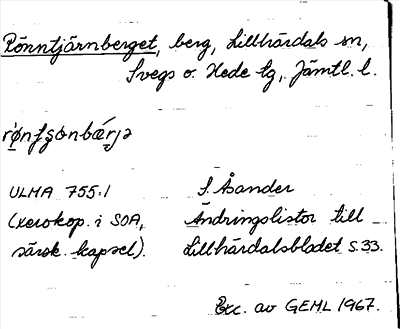 Rönntjärnberget, berg, Lillhärdals sn,
Svegs o. Hede tg, Jämtl. l.
ULMA 755:1
(xerokop. i SOA,
särsk. kapsel).
S. Åsander
Ändringslistor till
Lillhärdalsbladet s. 33.
Exc. av GEML 1967.